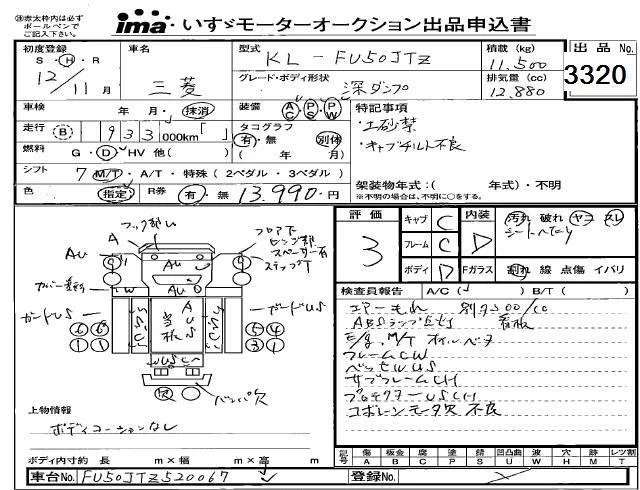 ※赤太枠内は必ず
ボールペンで
ご記入下さい。
ima いすゞモーターオークション出品申込書
出品 No.
3320
初度登録
S・H・R
12/11月
車名
三菱
型式
KL-FU50JTZ
グレード・ボディ形状
深ダンプ
積載 (kg)
11,500
排気量 (cc)
12,880
車検 年 月・抹消
装備 AC・PS・PW
走行 (B) 933,000km「 」
タコグラフ
有・無 別体
( 年 月)
燃料 G・D・HV 他( )
シフト 7 M/T・A/T・特殊(2ペダル・3ペダル)
色 指定 R券 有・無 13,990-円
特記事項
・土砂禁
・キャブチルト不良
架装物年式:( 年式)・不明
※不明の場合は、不明に○をする。
評価
3
キャブ C
フレーム C
ボディ D
内装 D
Fガラス
汚れ 破れ ヤコ スレ
シートヘたり
割れ 線 点傷 イバリ
検査員報告 A/C( ) B/T( )
エアーもれ
ABSランプ点灯 看板
E/g.M/T オイルベタ
フレームCW
ベッセWUS
サブフレームCH
プロテクターUSCH
コボレーンモータ欠 不良
フック部ム
A
AU
フロア下
ヒンジ部
スペーサー有
ステップ下
カバー
W
AU
AU
ガードUS
ガードUS
A
U
S
当板
WUSCH
バンパ欠
欠
上物情報
ボディコーションなし
ボディ内寸約 長 m×幅 m×高 m
記号 傷 A 板金 B 腐 C 塗 P 錆 S 凹凸曲 U 波 W 穴 H 跡 M レツ割 T
車台No. FU50JTZ520067
登録No.